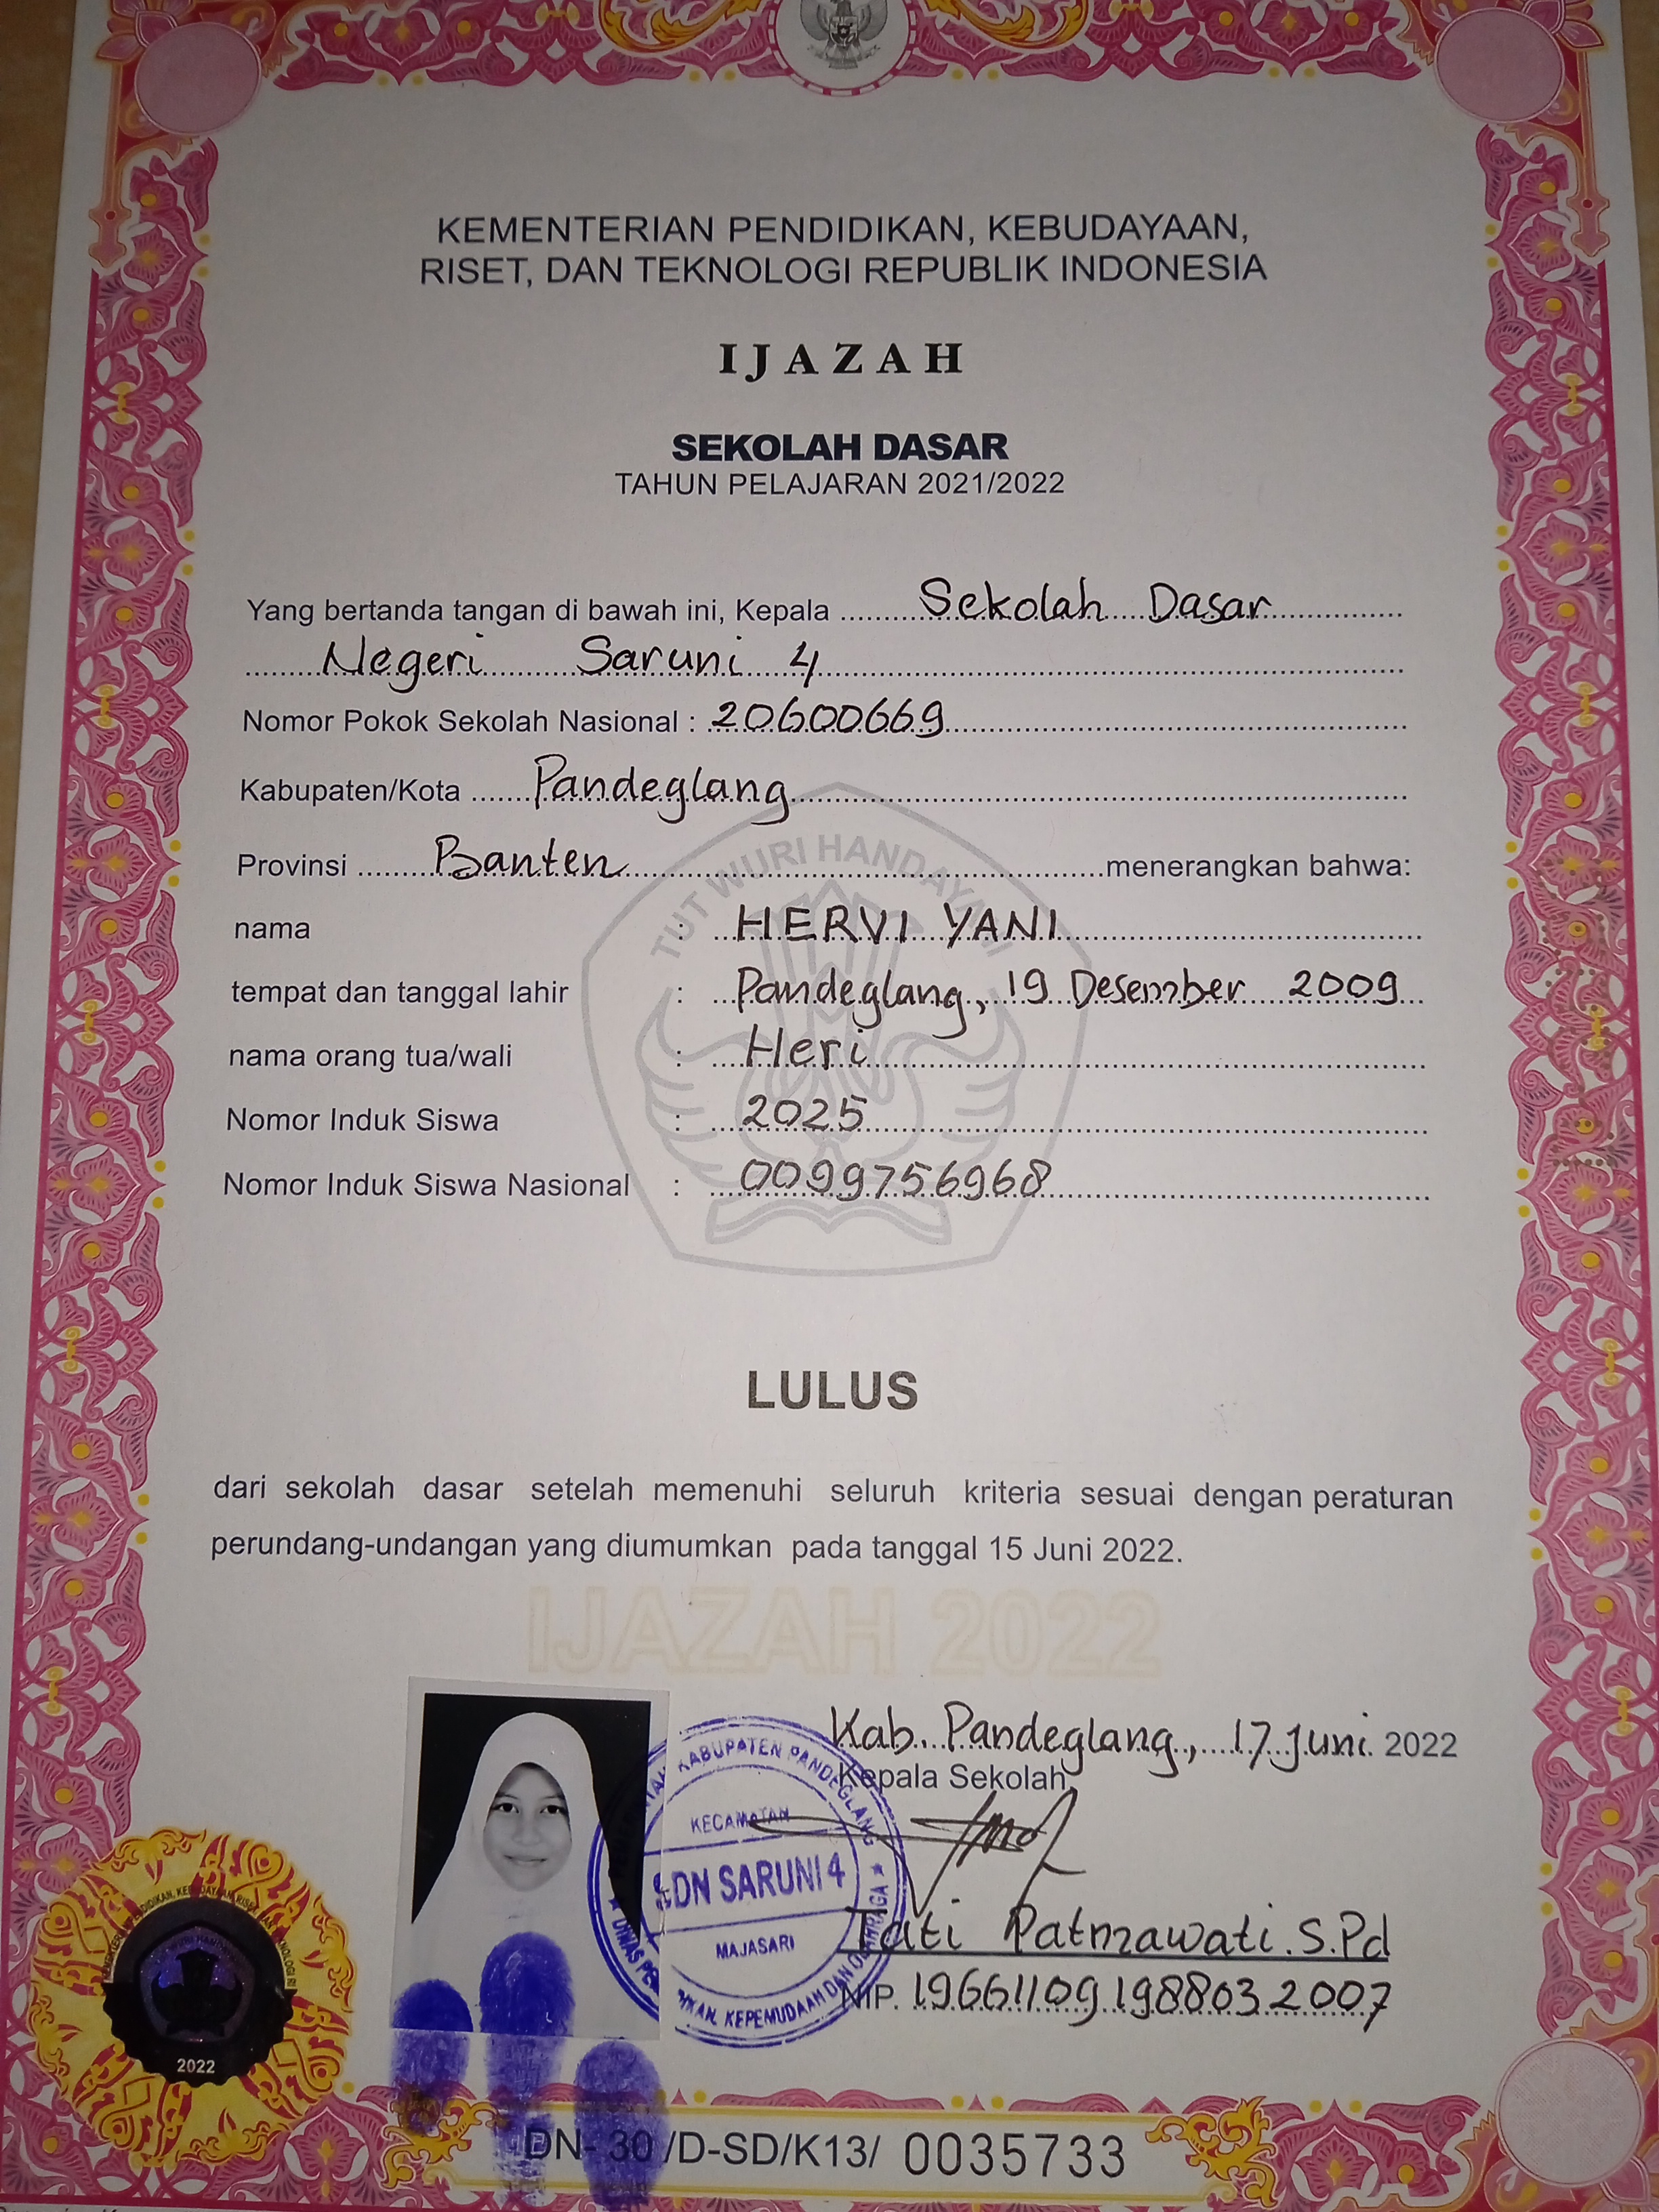 KEMENTERIAN PENDIDIKAN, KEBUDAYAAN,
RISET, DAN TEKNOLOGI REPUBLIK INDONESIA
IJAZAH
SEKOLAH DASAR
TAHUN PELAJARAN 2021/2022
Yang bertanda tangan di bawah ini, Kepala Sekolah Dasar
Negeri Saruni 4
Nomor Pokok Sekolah Nasional : 20600669
Kabupaten/Kota Pandeglang
Provinsi Banten menerangkan bahwa:
TUT WURI HANDAYANI
nama : HERVI YANI
tempat dan tanggal lahir : Pandeglang, 19 Desember 2009
nama orang tua/wali : Heri
Nomor Induk Siswa : 2025
Nomor Induk Siswa Nasional : 0099756968
LULUS
dari sekolah dasar setelah memenuhi seluruh kriteria sesuai dengan peraturan
perundang-undangan yang diumumkan pada tanggal 15 Juni 2022.
IJAZAH 2022
Kab. Pandeglang, 17 Juni 2022
Kepala Sekolah,
KABUPATEN PANDEGLANG
KECAMATAN
SDN SARUNI 4
MAJASARI
KEPEMUDAAN DAN OLAHRAGA
Tati S.Pd
NIP. 196611091988032007
2022
DN- 30 /D-SD/K13/ 0035733